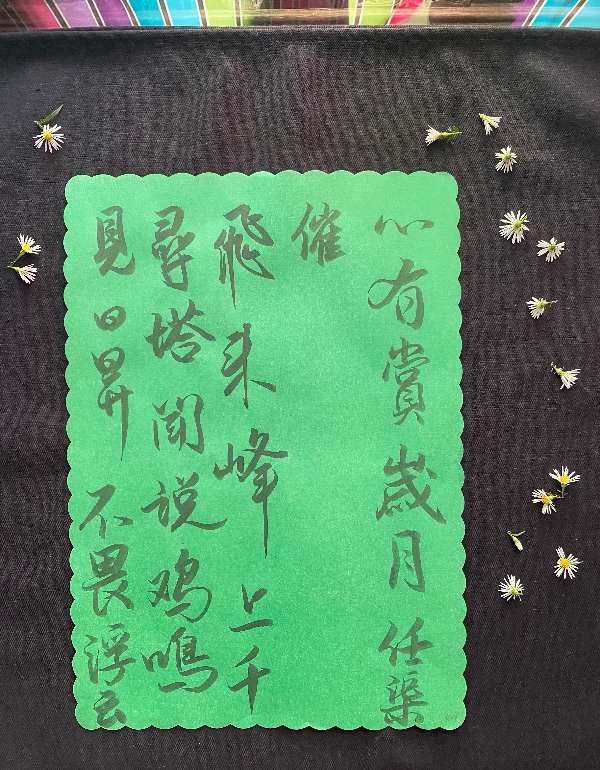 心有賞歲月任渠
催
飛来峰上千
尋塔闻说鸡鳴
見日昇不畏浮云